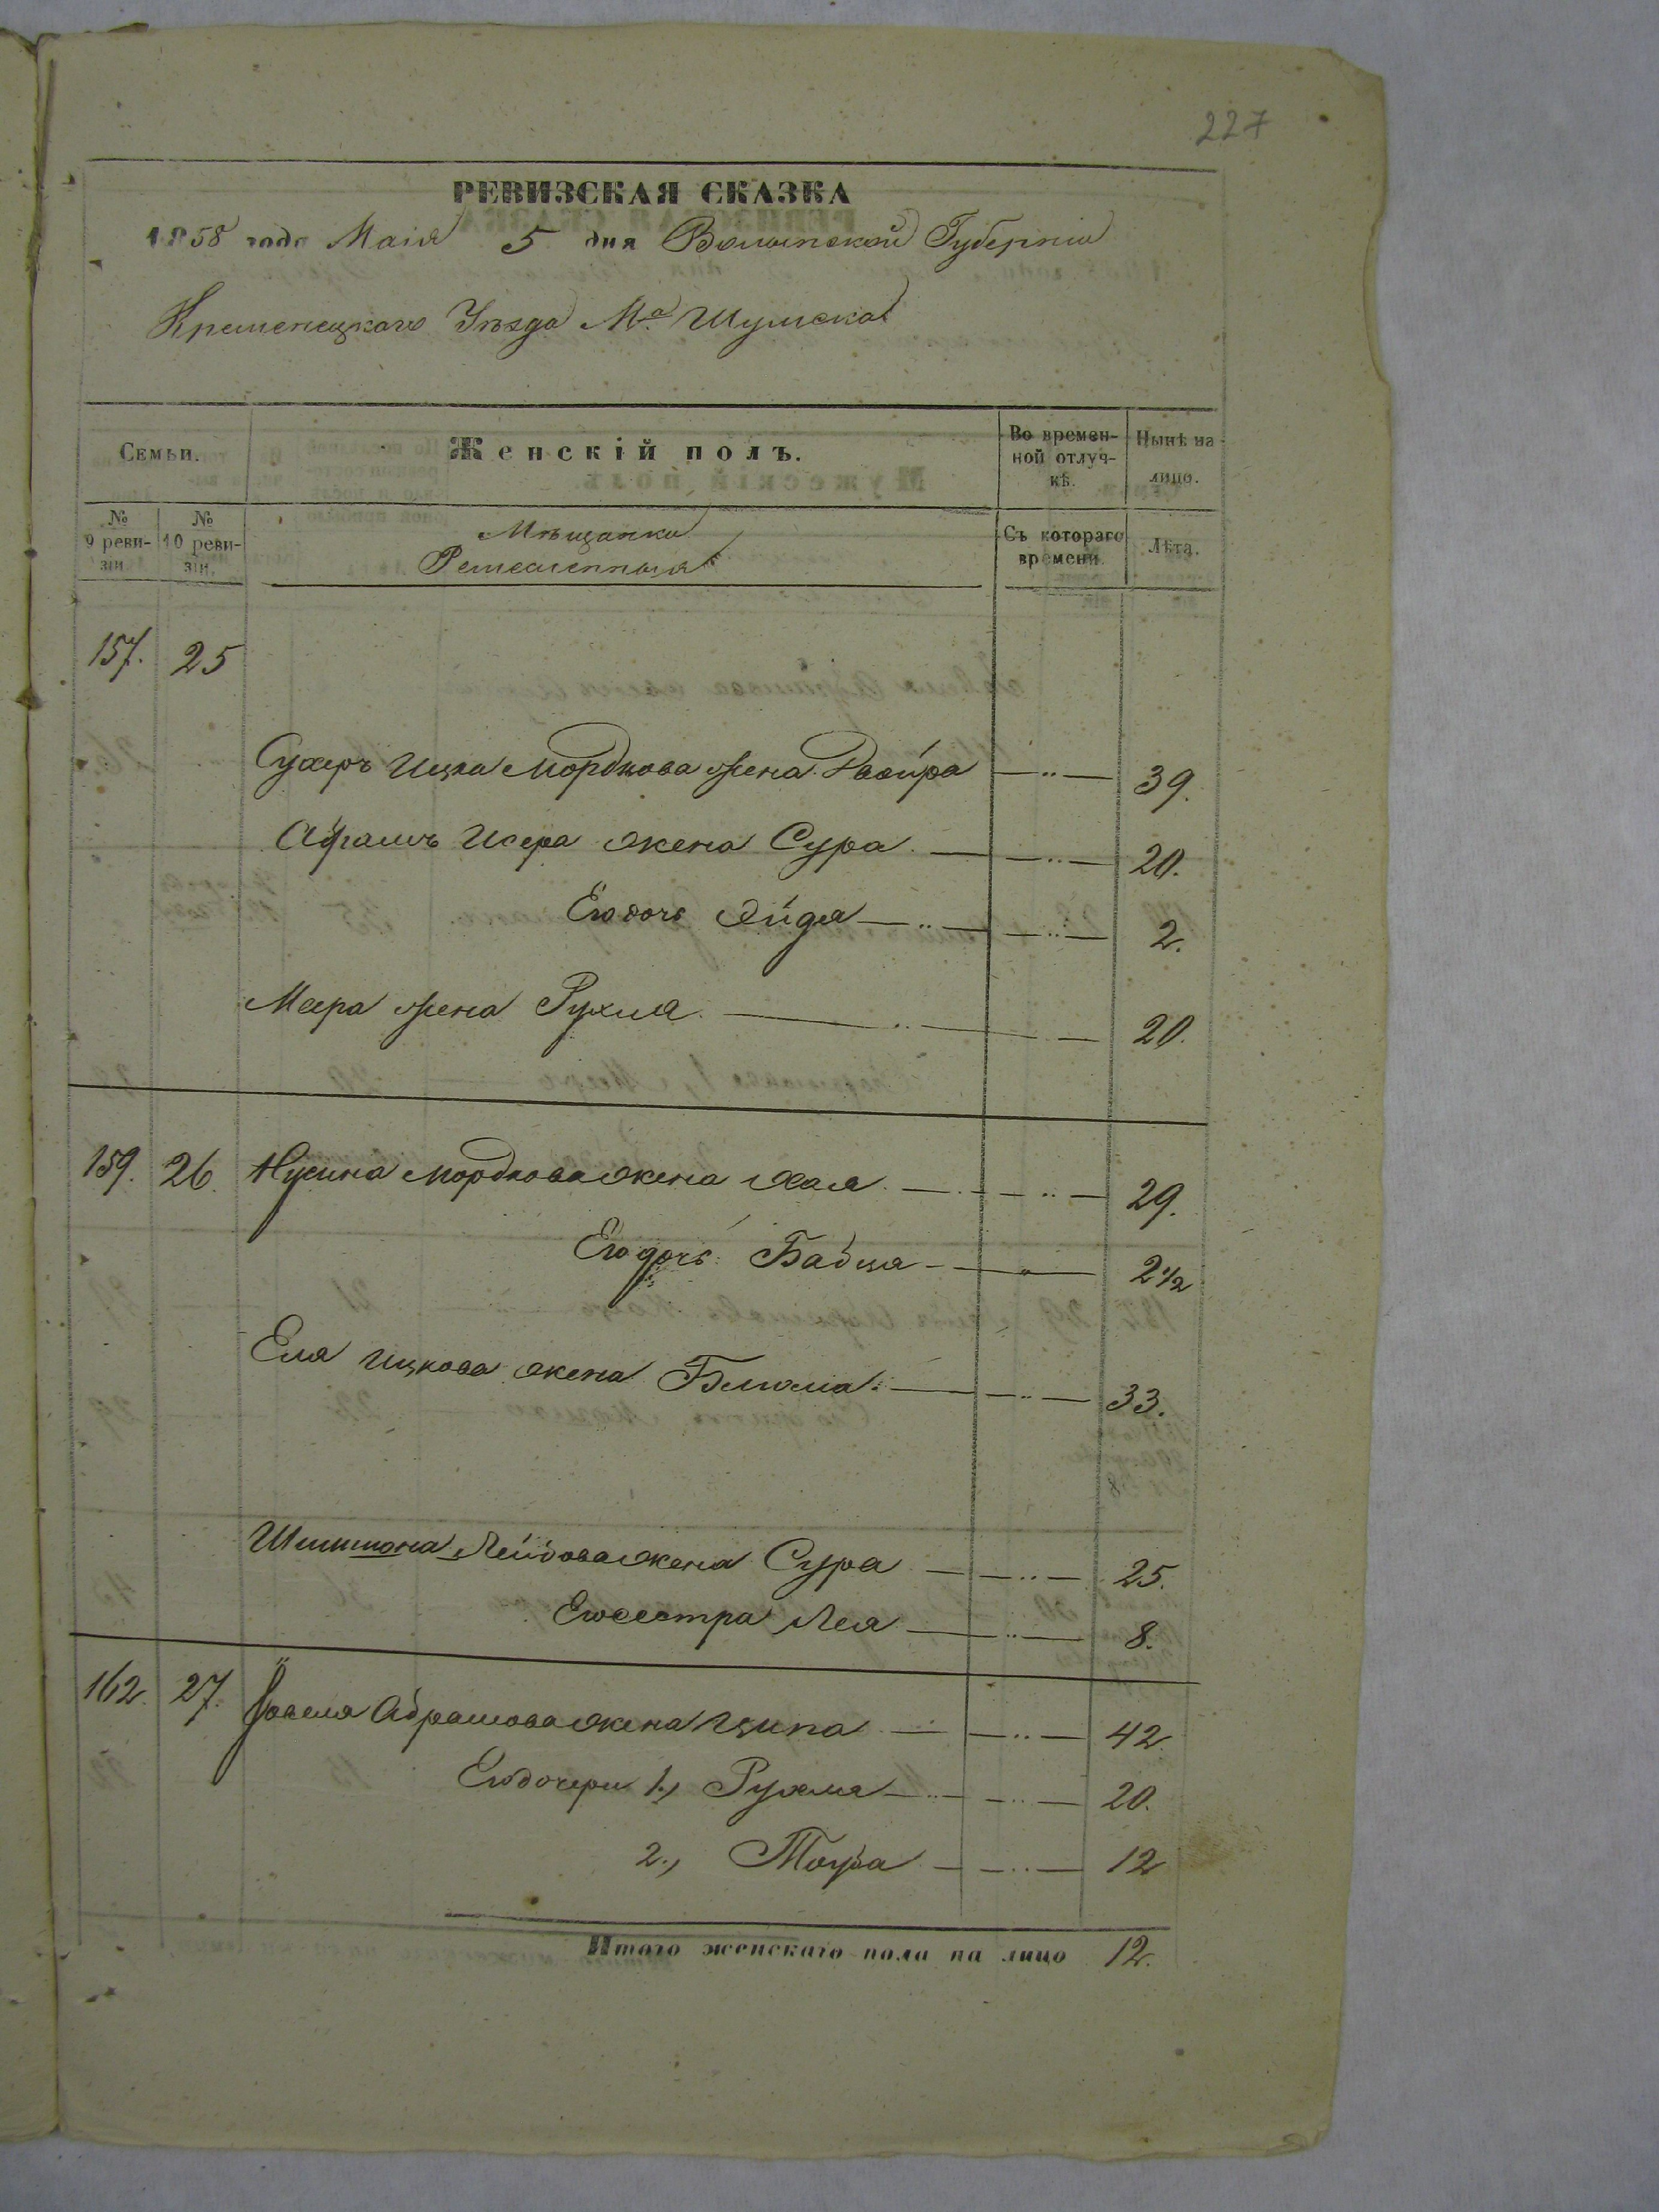 227
РЕВИЗСКАЯ СКАЗКА
1858 года Маія 5 дня Волынской Губерніи
Кременецкаго Уѣзда Мª Шумска
Семьи.
Женскій полъ.
Во времен-
ной отлуч-
кѣ.
Нынѣ на
лицо.
№
9 реви-
зіи
№
10 реви-
зіи.
Мѣщанки
Съ котораго
времени.
Лѣта.
157. 25
Сухеръ Ицка Мордкова жена Двойра 39.
Абрамъ Исера жена Сура 20.
Его дочь 2.
Меера жена Рухля 20.
159. 26. Нусина Мордкова жена Хая 29.
Его дочь Бабця 2 1/2
Еля Ицкова жена Блюма 33.
Шимшона Лейбова жена Сура 25.
Его сестра Лея 8.
162. 27. Іовеля Абрамова жена Ципа 42.
Его дочери 1., Рухля 20.
2., Тоуба 12
Итого женскаго пола на лицо 12.